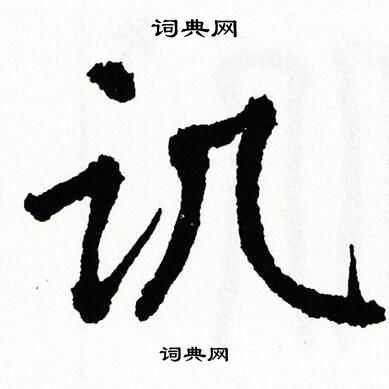 词典网
讥
词典网